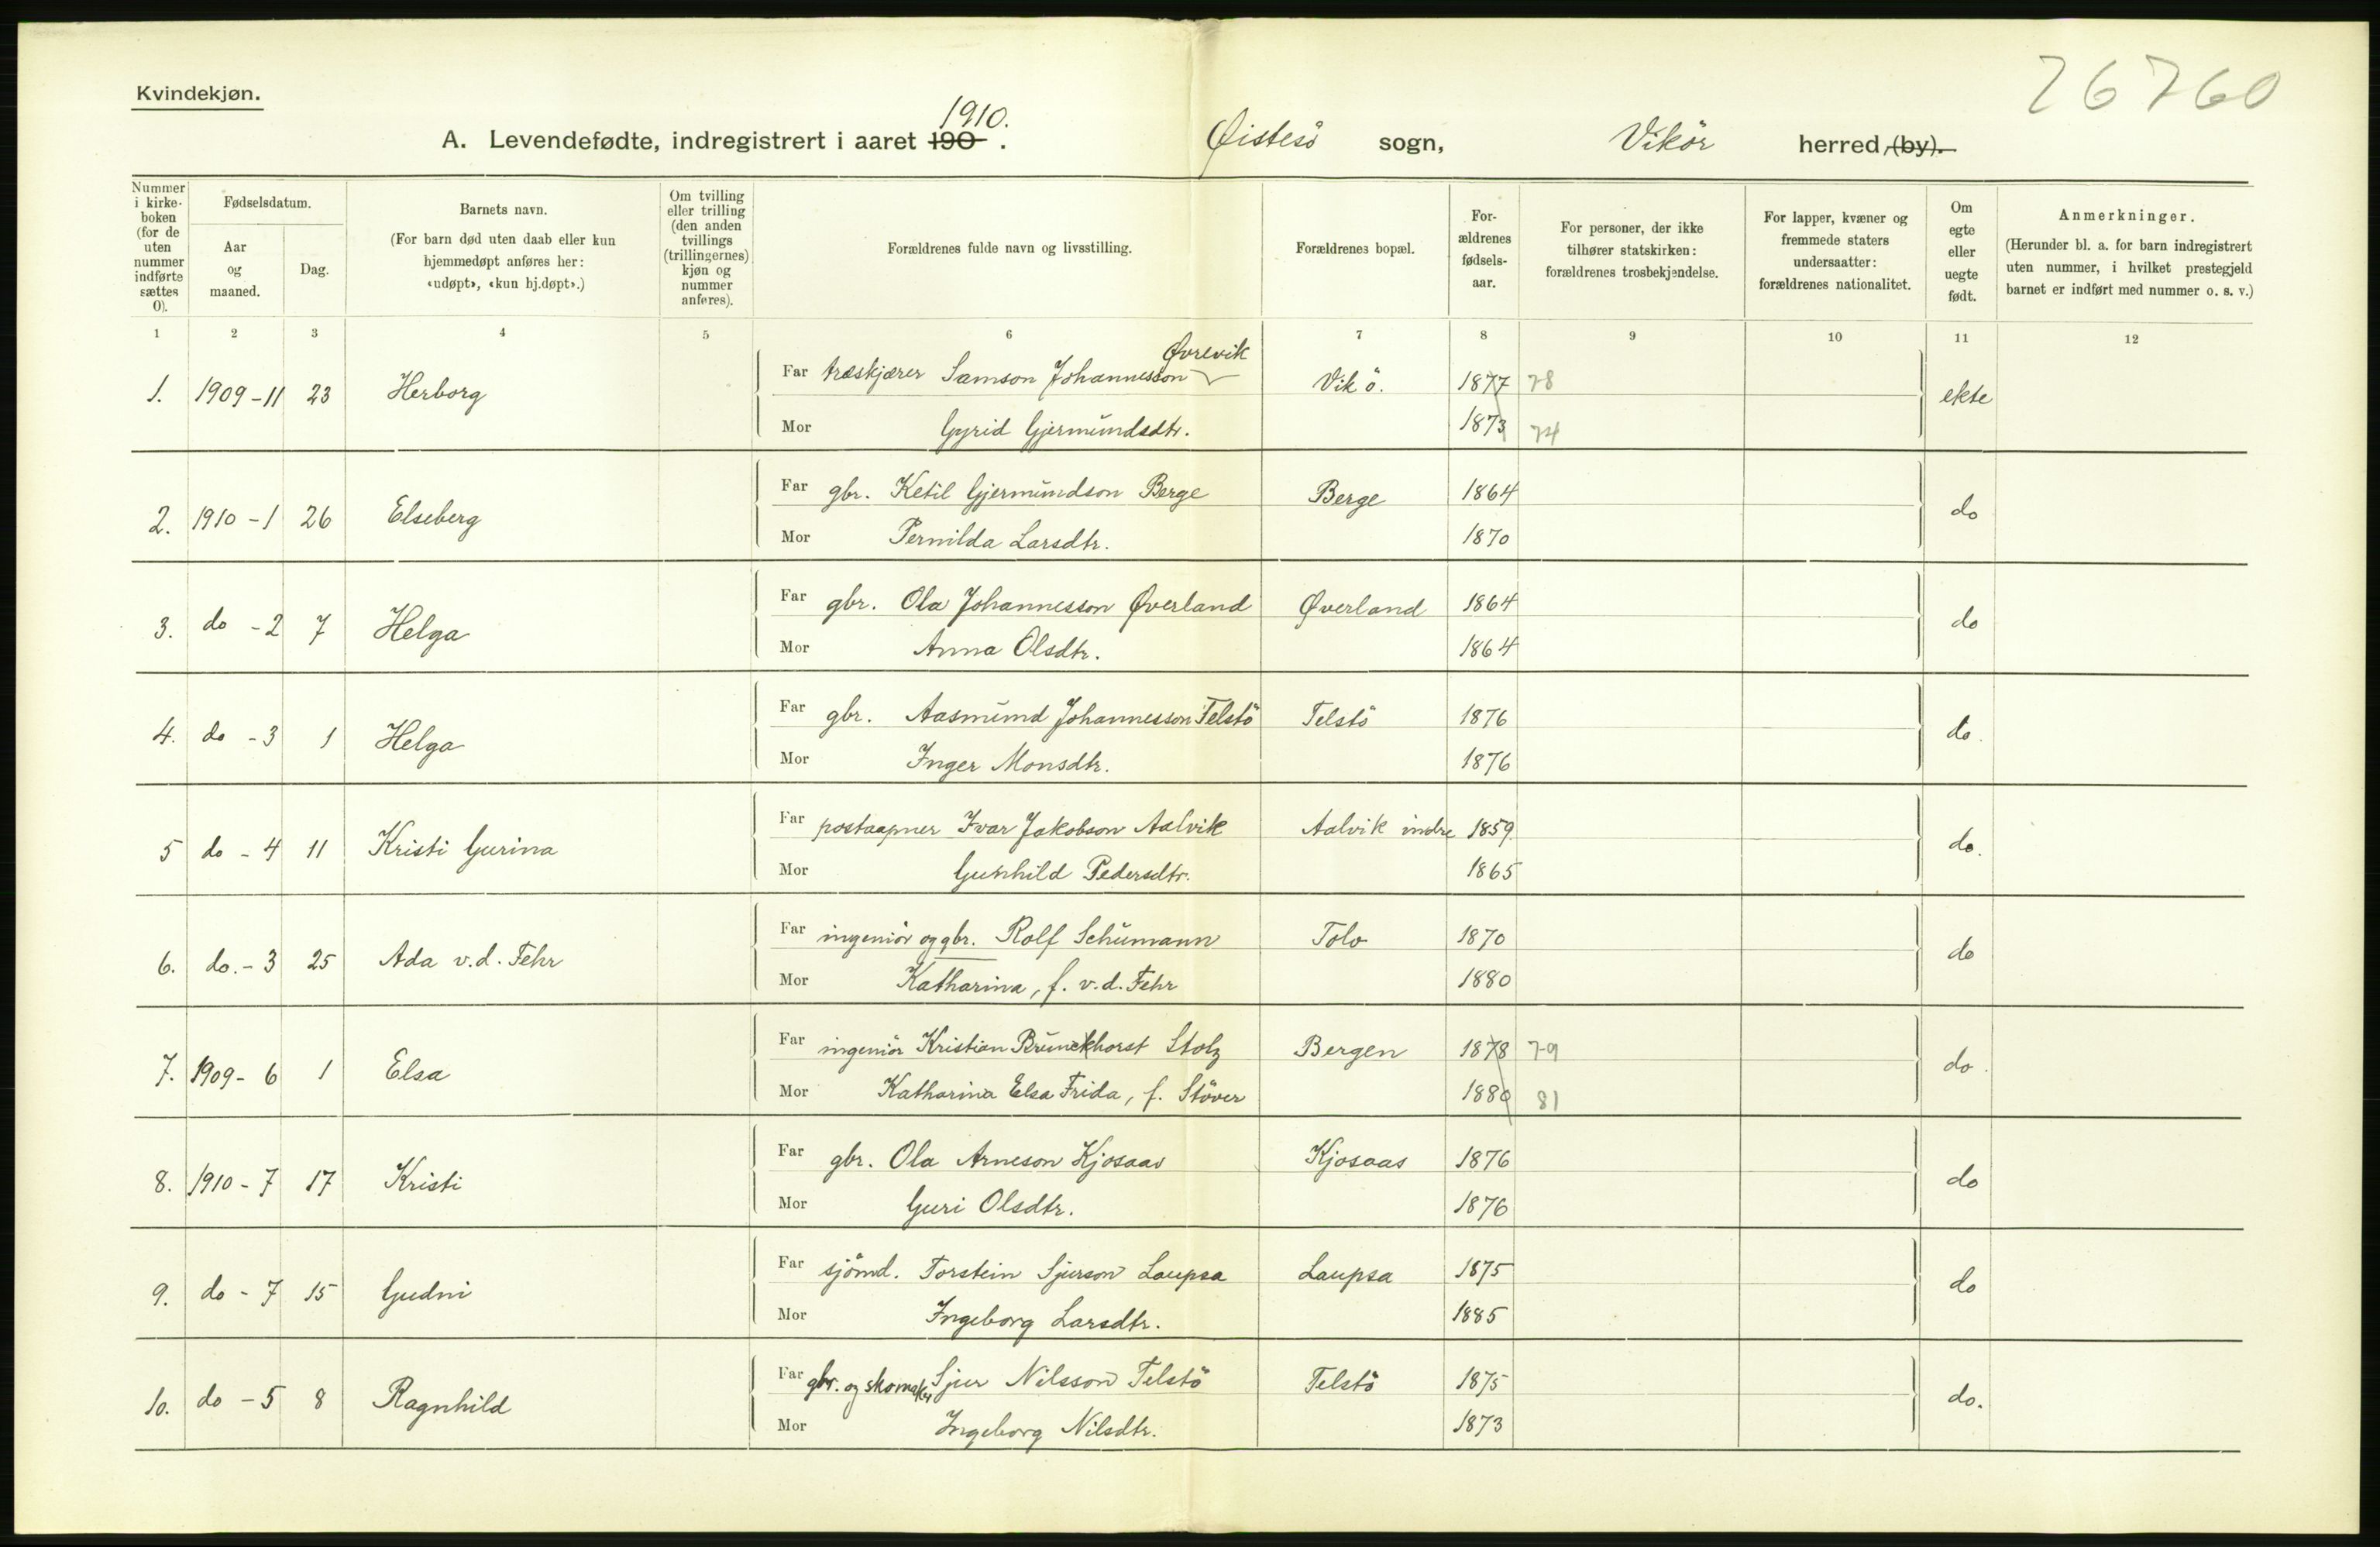 Kvindekjøn.
26760
A. Levendefødte, indregistrert i aaret 190 . 1910. Øistesö sogn, Vikör herred, (by).
Nummer i kirkeboken (for de uten nummer indførte sættes 0).
Fødselsdatum.
Aar og maaned.
Dag.
Barnets navn.
(For barn død uten daab eller kun hjemmedøpt anføres her: «udøpt», «kun hj.døpt».)
Om tvilling eller trilling (den anden tvillings (trillingernes) kjøn og nummer anføres).
Forældrenes fulde navn og livsstilling.
Forældrenes bopæl.
Forældrenes fødselsaar.
For personer, der ikke tilhører statskirken: forældrenes trosbekjendelse.
For lapper, kvæner og fremmede staters undersaatter: forældrenes nationalitet.
Om egte eller uegte født.
Anmerkninger.
(Herunder bl. a. for barn indregistrert uten nummer, i hvilket prestegjeld barnet er indført med nummer o. s. v.)
1 2 3 4 5 6 7 8 9 10 11 12
1. 1909-11 23 Herborg Far træskjærer Samson Johannesson Øvrevik Vikö. 1877 78 ekte
Mor Gyrid Gjermundsdtr. 1873 74
2. 1910-1 26 Elseberg Far gbr. Ketil Gjermundson Berge Berge 1864 do
Mor Pernilda Larsdtr. 1870
3. do -2 7 Helga Far gbr. Ola Johannesson Øverland Øverland 1864 do
Mor Anna Olsdtr. 1864
4. do -3 1 Helga Far gbr. Aasmund Johannesson Telstö Telstö 1876 do.
Mor Inger Monsdtr. 1876
5 do - 4 11 Kristi Gurina Far postaapner Ivar Jakobson Aalvik Aalvik indre 1859. do.
Mor Gunhild Pedersdtr. 1865
6. do. - 3 25 Ada v.d. Fehr Far ingeniör og gbr. Rolf Schumann Tolo 1870 do
Mor Katharina, f. v.d. Fehr 1880
7. 1909- 6 1 Elsa Far ingeniör Kristian Brunckhorst Stolz Bergen 1878 79 do.
Mor Katharina Elsa Frida, f. Stöver 1880 81
8. 1910 - 7 17 Kristi Far gbr. Ola Arneson Kjosaas Kjosaas 1876 do
Mor Guri Olsdtr. 1876
9. do - 7 15 Gudni Far sjömd. Torstein Sjurson Laupsa Laupsa 1875 do
Mor Ingeborg Larsdtr. 1885
10. do - 5 8 Ragnhild Far gbr. og skomaker Sjur Nilsson Telstö Telstö 1875 do.
Mor Ingeborg Nilsdtr. 1873